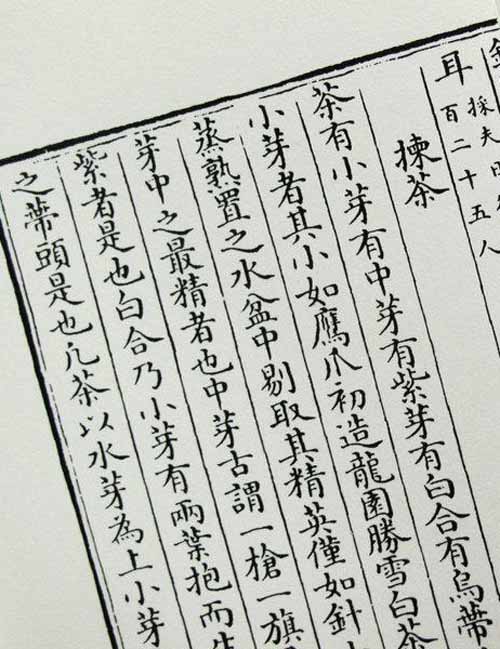 耳
採夫日
百二十五人
揀茶
茶有小芽有中芽有紫芽有白合有烏蔕
小芽者其小如鷹爪初造龍園勝雪白茶
蒸熟置之水盆中剔取其精英僅如針
芽中之最精者也中芽古謂一槍一旗
紫者是也白合乃小芽有兩葉抱而
之蔕頭是也凡茶以水芽為上小芽